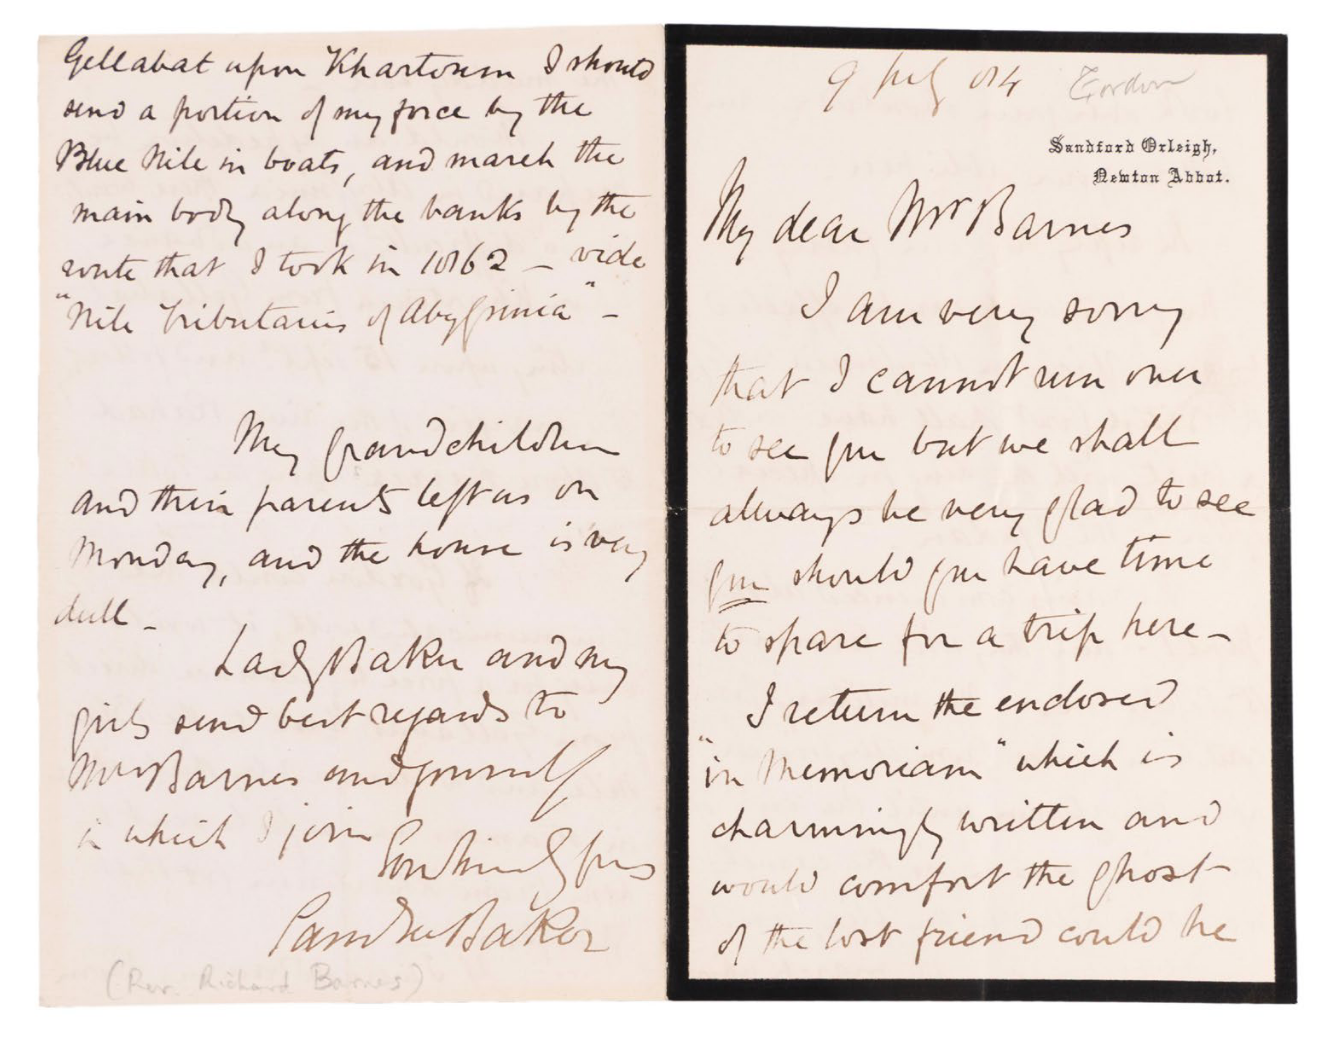 9 July 84 Gordon
Sandford Orleigh,
Newton Abbot.
My dear Mr Barnes
I am very sorry
that I cannot run over
to see you but we shall
always be very glad to see
you should you have time
to spare for a trip here –
I return the enclosed
"in Memoriam" which is
charmingly written and
would comfort the ghost
of the lost friend could he
Gellabat upon Khartoum I should
send a portion of my force by the
Blue Nile in boats, and march the
main body along the banks by the
route that I took in 1862 – vide
"Nile Tributaries of Abyssinia" –
My grandchildren
and their parents left us on
Monday, and the house is very
dull –
Lady Baker and my
girls send best regards to
Mrs Barnes and yourself
in which I join
Yours
Baker
(Rev. Richard Barnes)